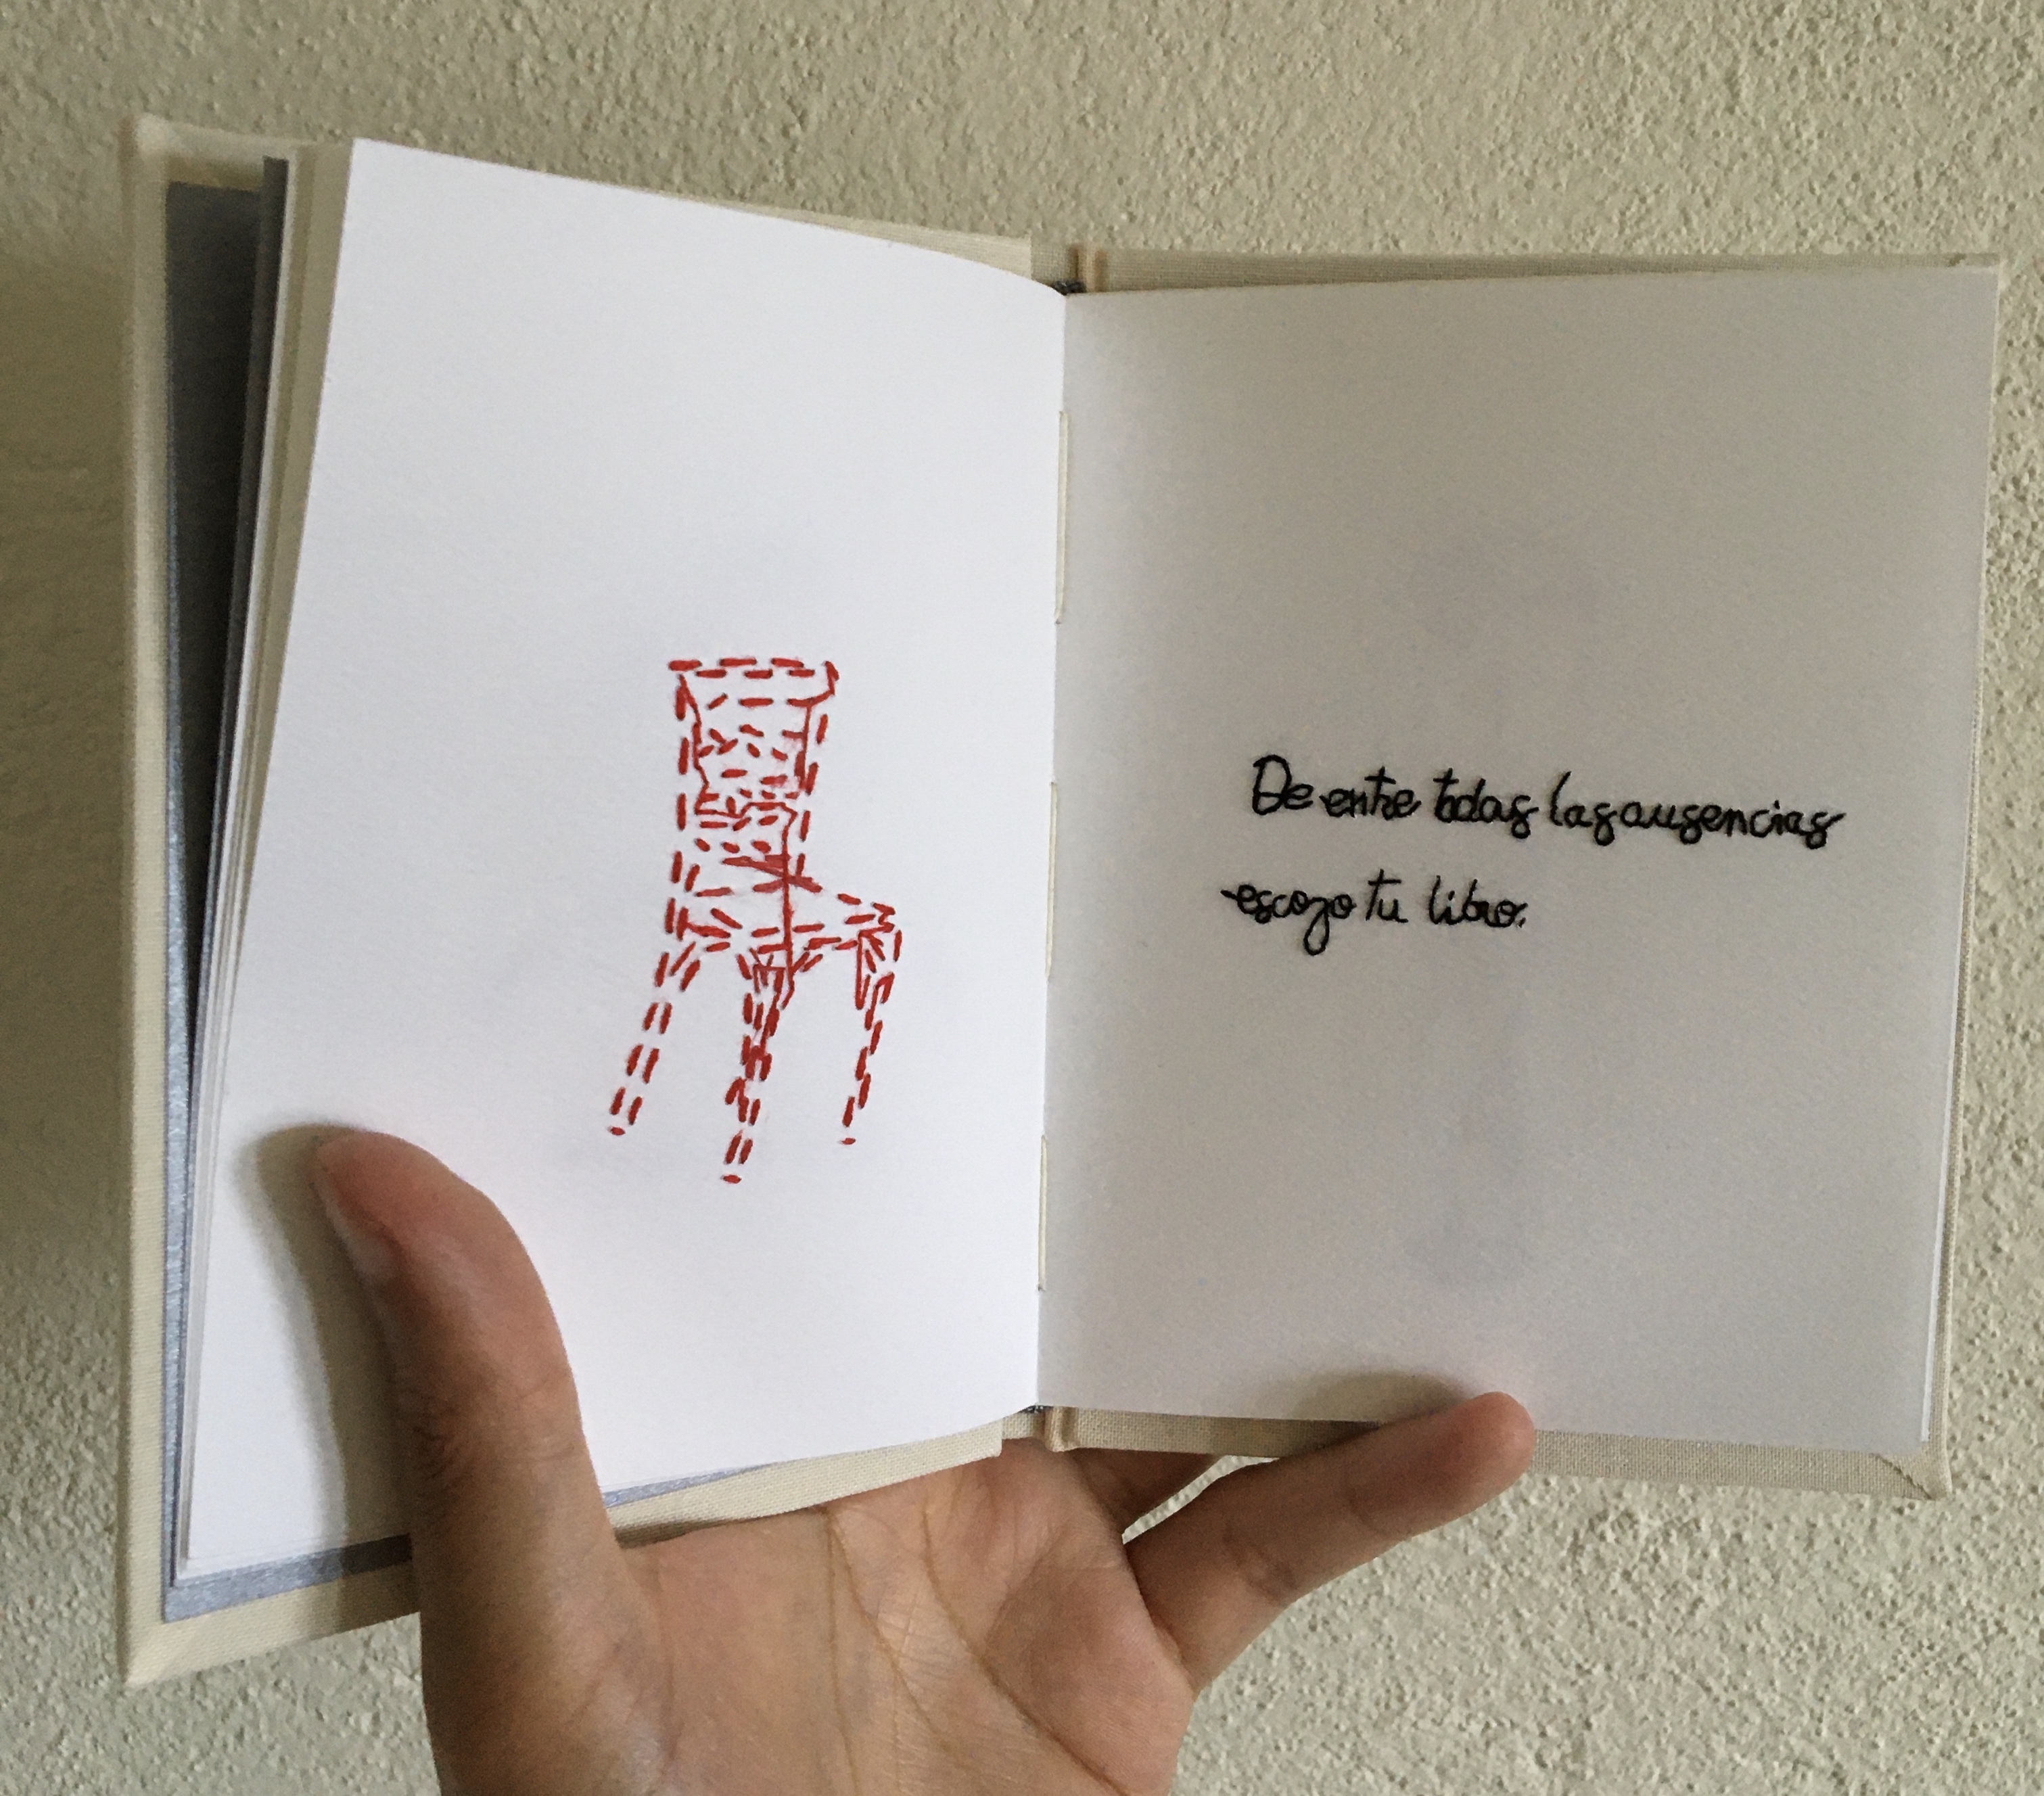 De entre todas las ausencias
escojo tu libro.